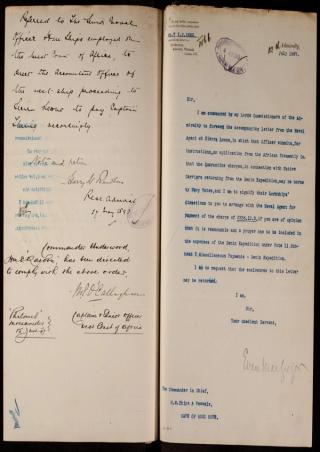 Referred to The Senior Naval
Officer H.M. Ships employed on
the West Coast of Africa, to
direct the Accountant Officer of
the next ship proceeding to
Sierra Leone to pay Captain
accordingly.
Note and return
Rear Admiral
1897
Commander Underwood,
has been directed
to comply with the above order.
Captain & Senior Officer
West Coast of Africa
Admiralty,
July 1897.
Sir,
I am commanded by my Lords Commissioners of the Ad-
miralty to forward the accompanying letter from the Naval
Agent at Sierra Leone, in which that Officer submits, for
instructions, an application from the African Steamship Co
that the Quarantine charges, in connection with Native
Carriers returning from the Benin Expedition, may be borne
by Navy Votes, and I am to signify their Lordships'
directions to you to arrange with the Naval Agent for
payment of the charge of if you are of opinion
that it is reasonable and a proper one to be included in
the expenses of the Benin Expedition under Vote 11. Sub-
head Miscellaneous Payments - Benin Expedition.
I am to request that the enclosures to this letter
may be returned.
I am,
Sir,
Your obedient Servant,
Evan MacGregor
The Commander in Chief,
H.M. Ships & Vessels,
CAPE OF GOOD HOPE.